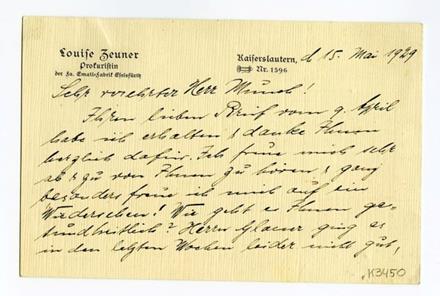 Louise Zeuner
Prokuristin
der Fa. Email-Fabrik Eselsfürth
Kaiserslautern, d 15. Mai 1929
Nr. 1596
Sehr verehrter Herr Münch!
Ihren lieben Brief vom 9. April
habe ich erhalten & danke Ihnen
herzlich dafür. Ich freue mich sehr
ab & zu von Ihnen zu hören & ganz
besonders freue ich mich auf ein
Wiedersehen! Wie geht es Ihnen ge-
sundheitlich? Herrn Glaeser ging es
in den letzten Wochen leider nicht gut,
K3450